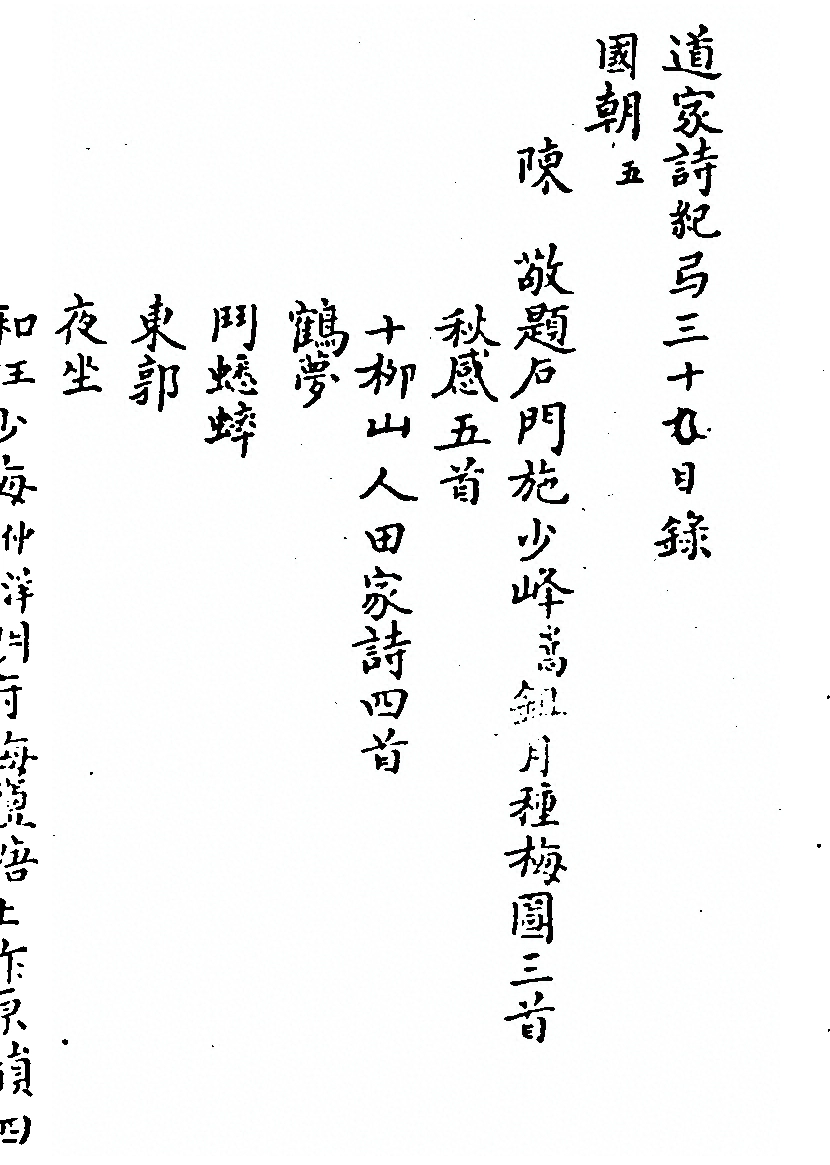 道家詩紀弓三十九目錄
國朝五
陳 敬題石門施少峰嵩鉏月種梅圖三首
秋感五首
十柳山人田家詩四首
鶴夢
鬥蟋蟀
東郭
夜坐
和汪少海仲洋